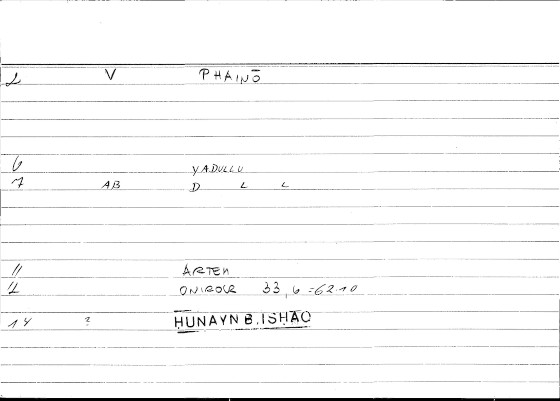 2 V PHAINŌ
6 YADULLU
7 AB D L L
11 ARTEM
12 ONIROCR 33,6 = 62.10
14 ? HUNAYN B. ISHAQ